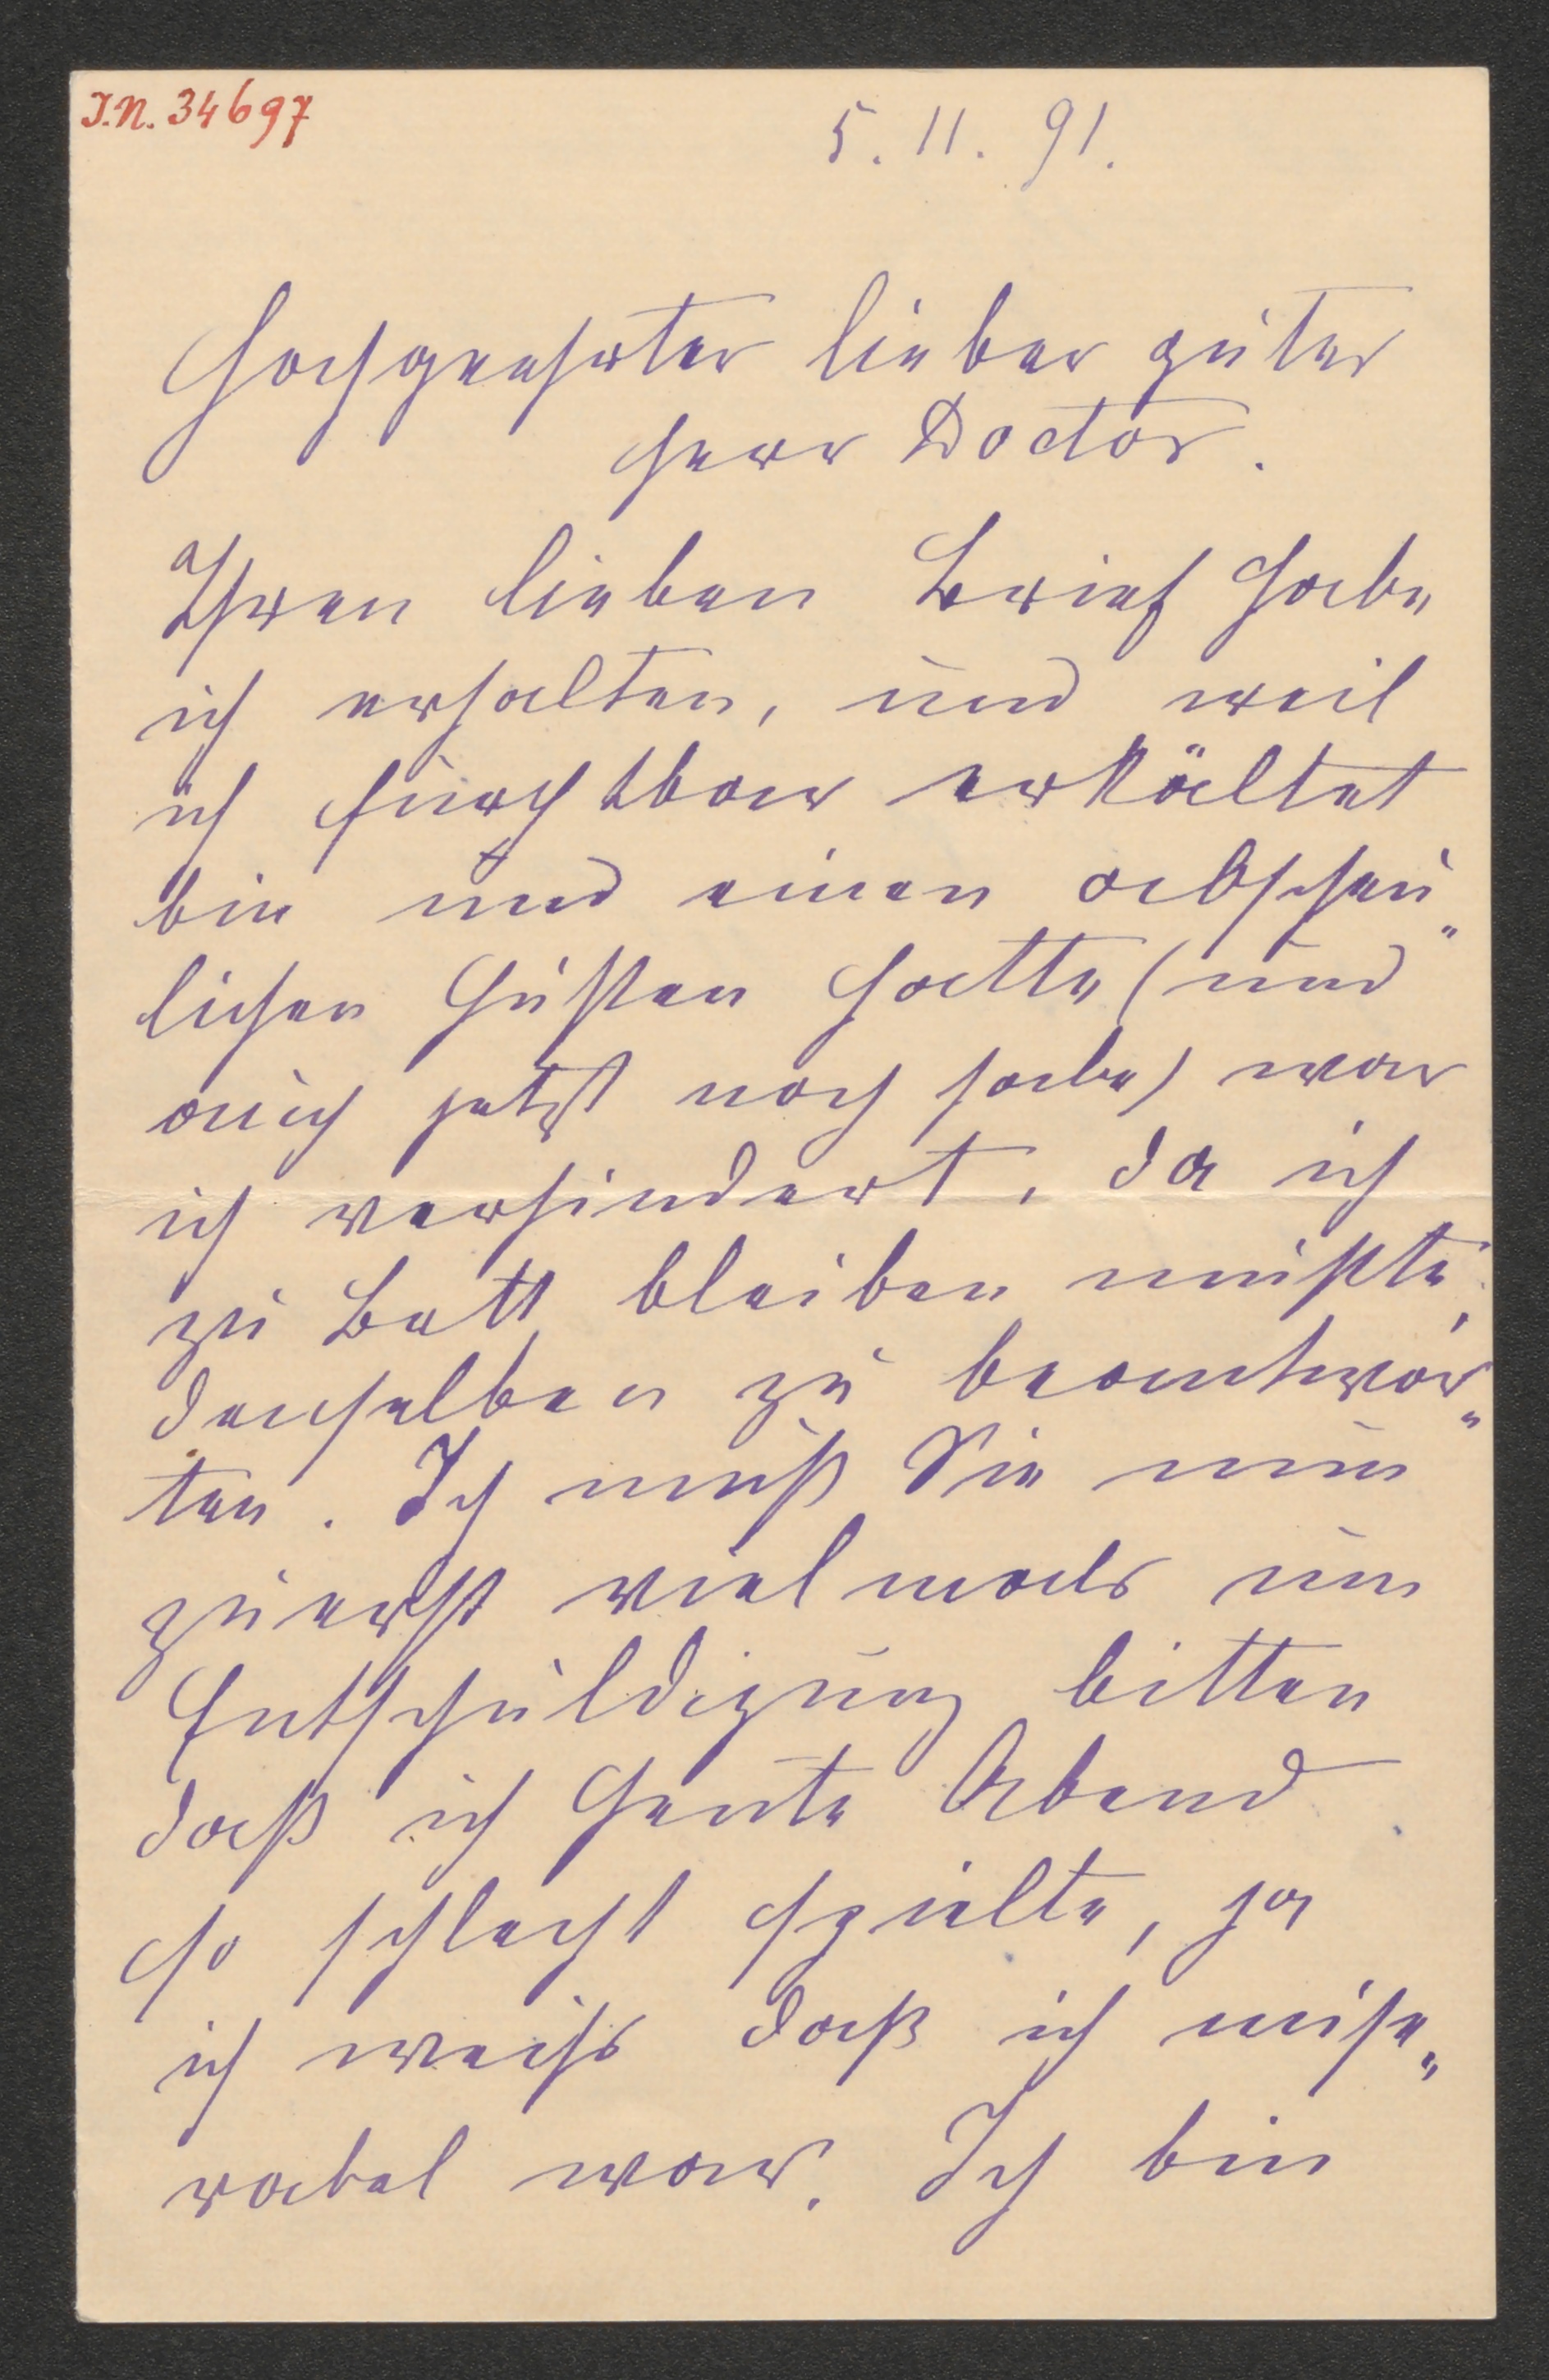 I.N. 34697
5. 11. 91.
Hochgeehrter lieber guter
Herr Doctor.
Ihren lieben Brief habe
ich erhalten, und weil
ich furchtbar erkältet
bin und einen abscheu„
lichen Husten hatte (und
auch jetzt noch habe) war
ich verhindert, da ich
zu Bett bleiben mußte,
denselben zu beantwor„
ten. Ich muß Sie nun
zuerst vielmals um
Entschuldigung bitten
daß ich heute Abend
so schlecht spielte, ja
ich weiss daß ich mise„
rabel war. Ich bin